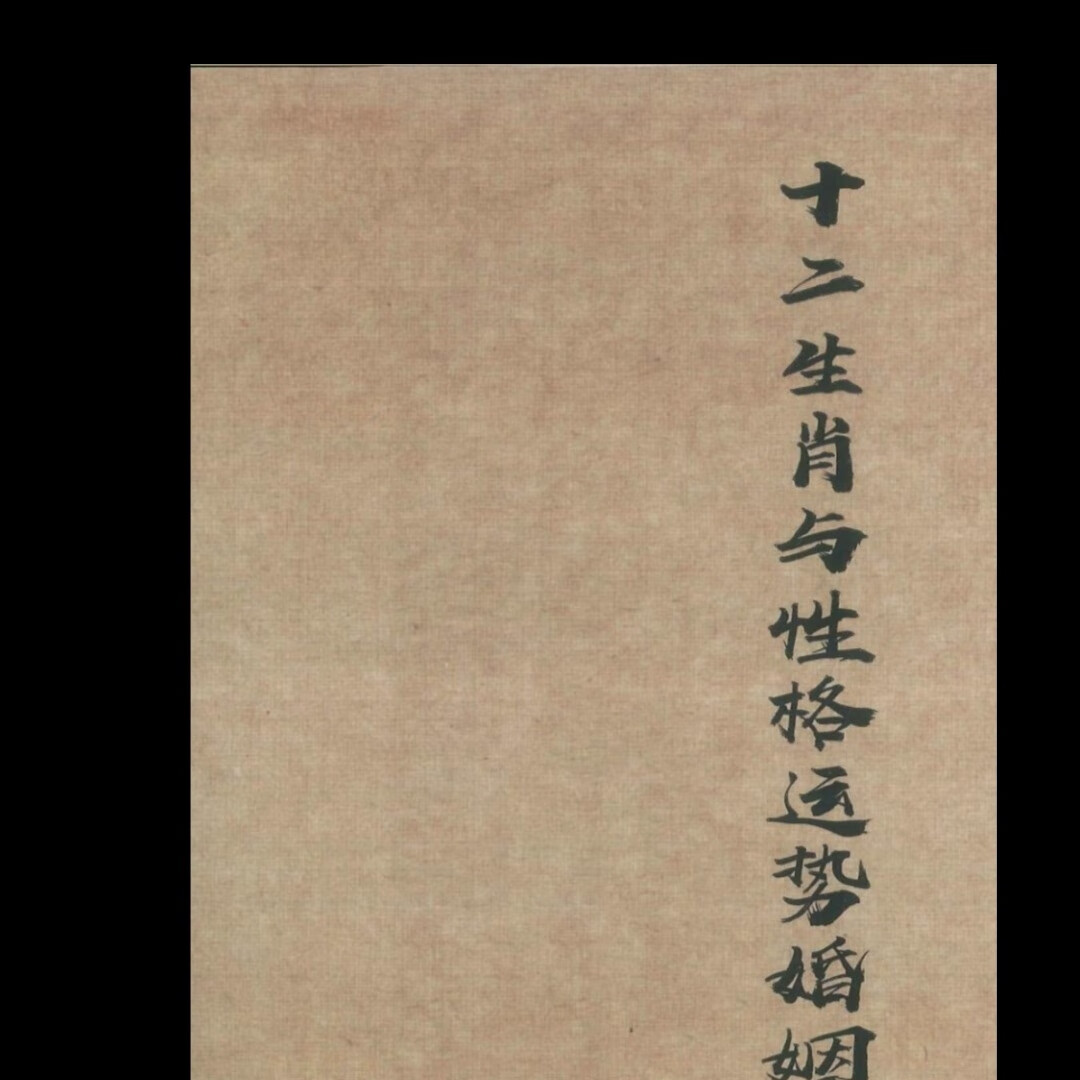 十二生肖与性格运势婚姻